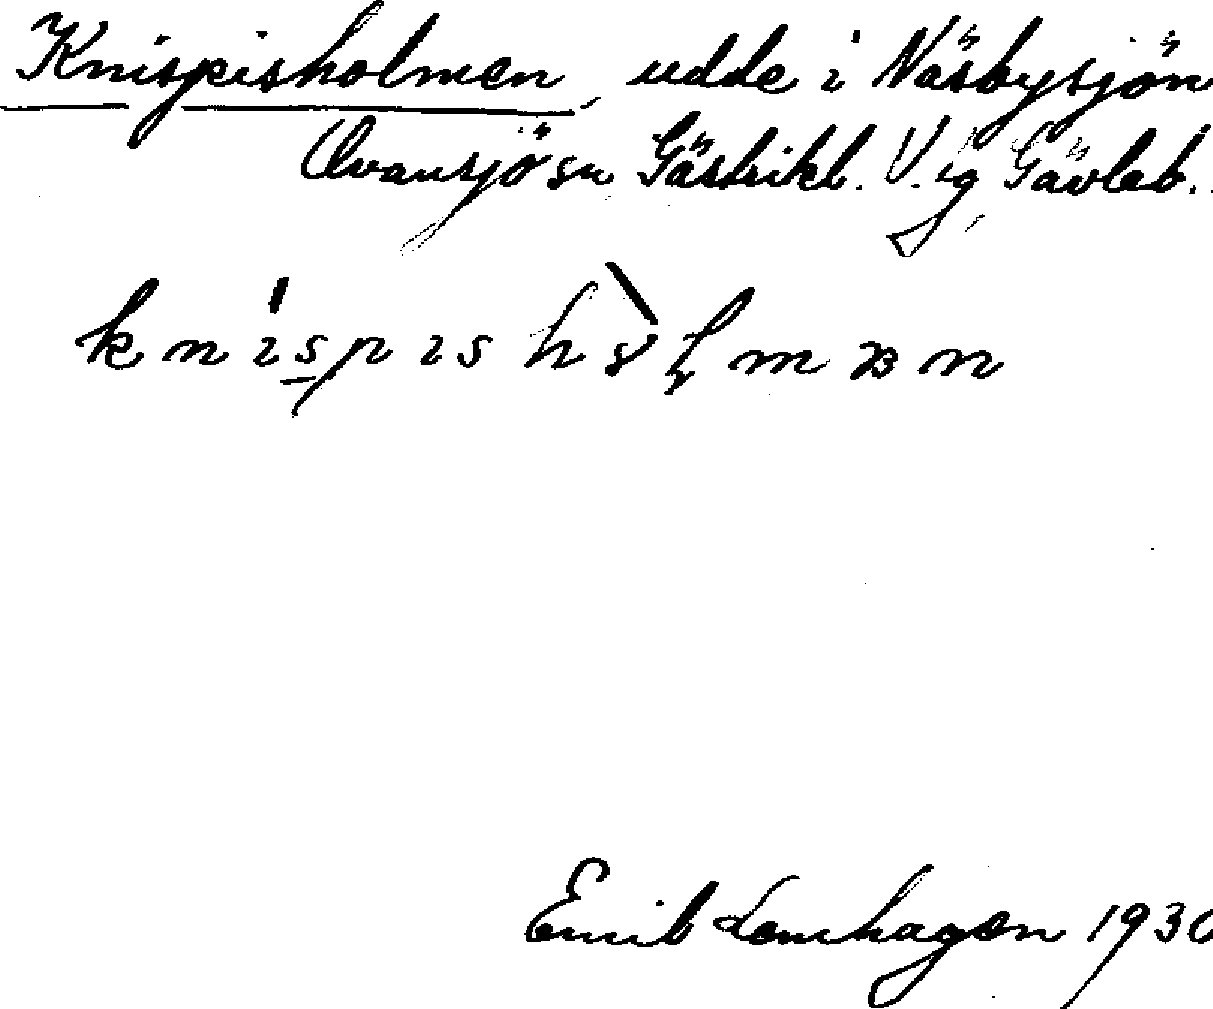 Knispisholmen, udde i Näsbysjön
Ovansjö sn Gästrikl. V. ig Gävleb.
k n i s p i s h o l m e n
Emil Lemhagen 1930